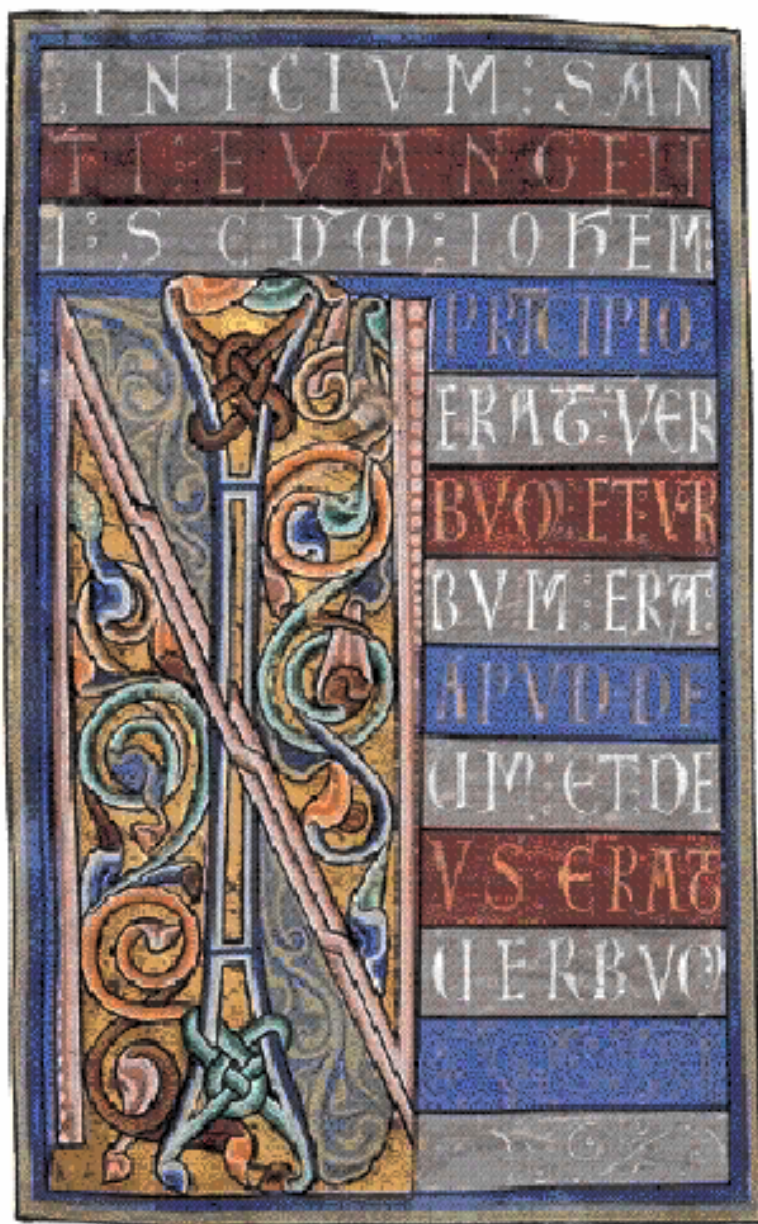 :INICIVM:SAN
TI:EVANGELI
I:SCDM:IOHEM:
IN
PRICIPIO
ERAT:VER
BVM:ETVR
BVM:ERAT:
APVD:DE
UM:ET:DE
VS ERAT
UERBVM